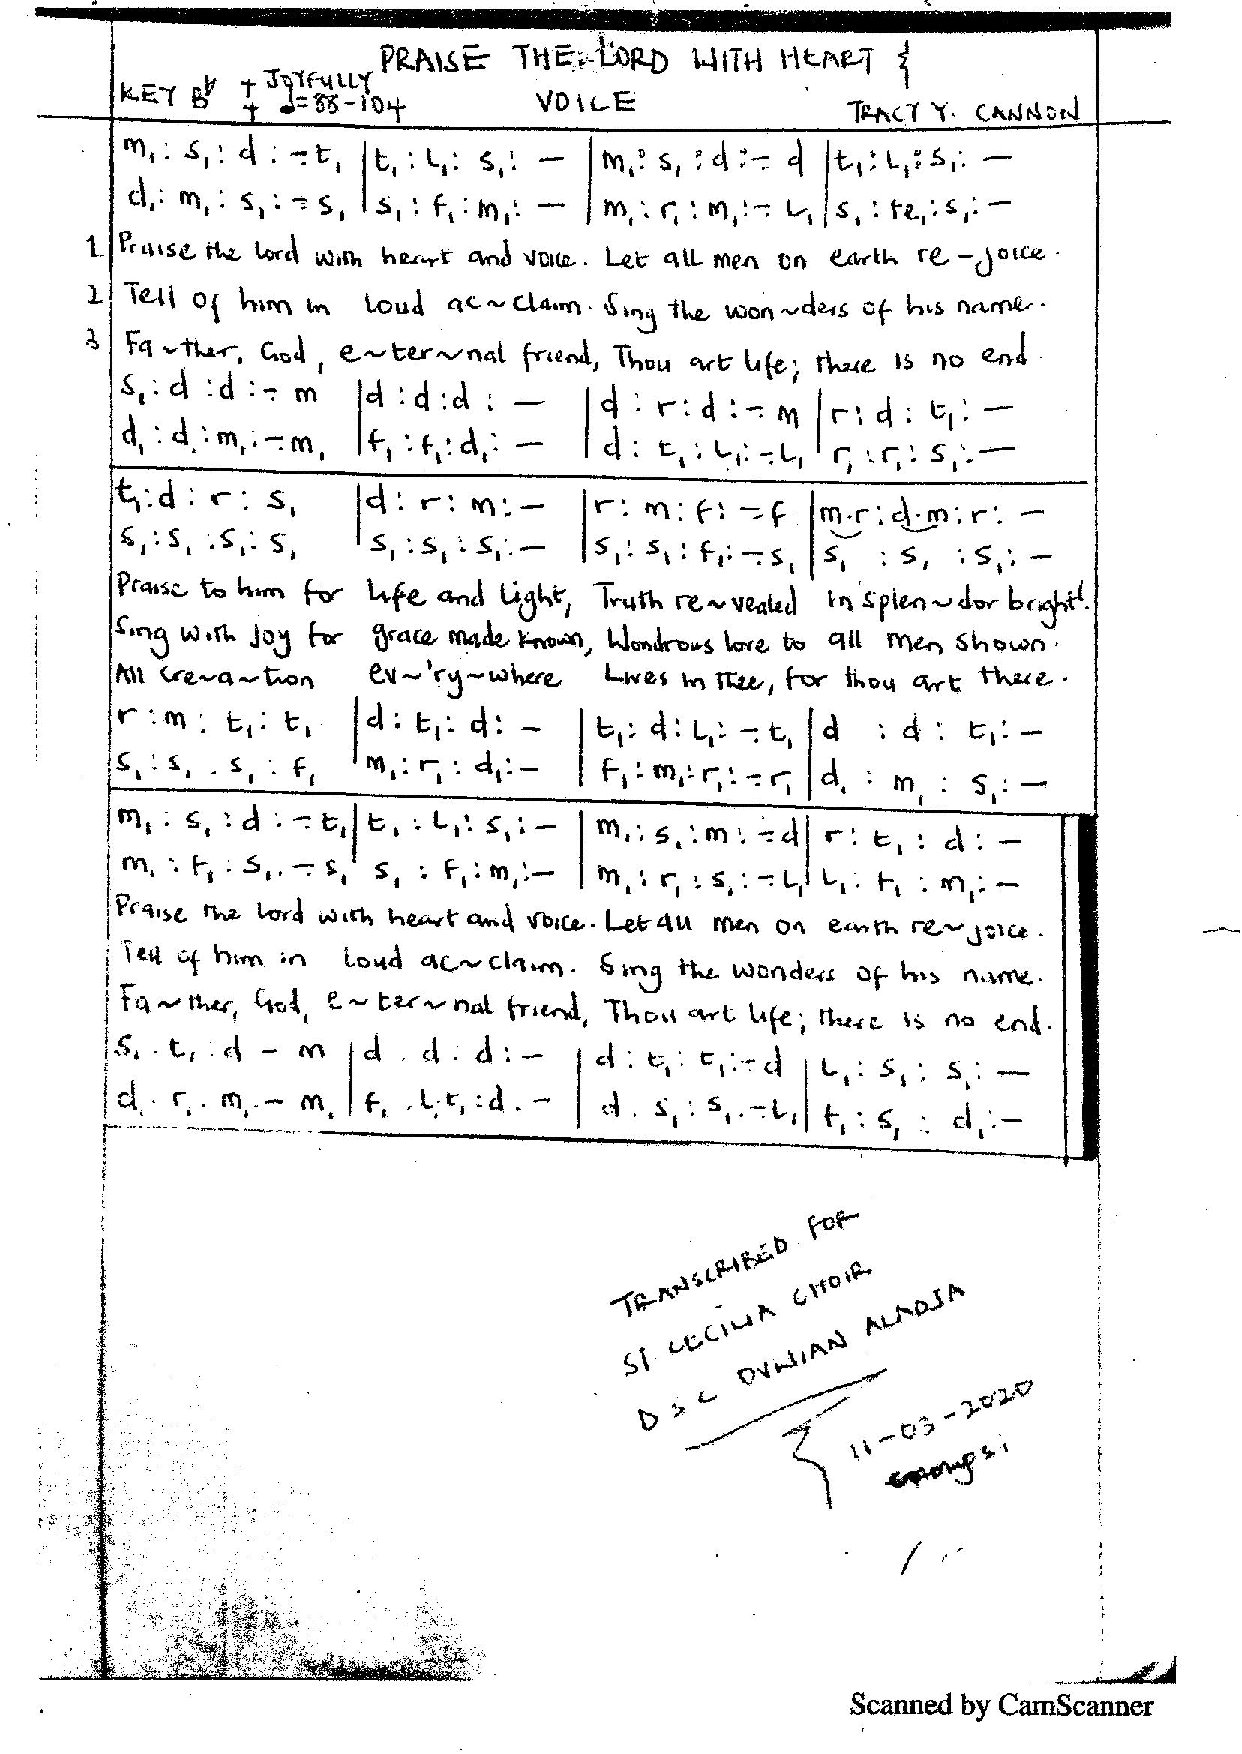 PRAISE THE LORD WITH HEART &
VOICE
KEY B♭ JOYFULLY
♩=88-104
TRACY Y. CANNON
m₁ : s₁ : d : -. t₁ | t₁ : l₁ : s₁ : — | m₁ : s₁ : d : -. d | t₁ : l₁ : s₁ : —
d₁ : m₁ : s₁ : -. s₁ | s₁ : f₁ : m₁ : — | m₁ : r₁ : m₁ : -. l₁ | s₁ : fe₁ : s₁ : —
1 Praise the lord with heart and voice. Let all men on earth re-joice.
2 Tell of him in loud ac~claim. Sing the won~ders of his name.
3 Fa~ther, God, e~ter~nal friend, Thou art life; there is no end.
s₁ : d : d : -. m | d : d : d : — | d : r : d : -. m | r : d : t₁ : —
d₁ : d₁ : m₁ : -. m₁ | f₁ : f₁ : d₁ : — | d : t₁ : l₁ : -. l₁ | r₁ : r₁ : s₁ : —
t₁ : d : r : s₁ | d : r : m : — | r : m : f : -. f | m.r : d.m : r : —
s₁ : s₁ : s₁ : s₁ | s₁ : s₁ : s₁ : — | s₁ : s₁ : f₁ : -. s₁ | s₁ : s₁ : s₁ : —
Praise to him for life and light, Truth re~vealed in splen~dor bright.
Sing with joy for grace made known, Wondrous love to all men shown.
All cre~a~tion ev~'ry~where Lives in thee, for thou art there.
r : m : t₁ : t₁ | d : t₁ : d : — | t₁ : d : l₁ : -. t₁ | d : d : t₁ : —
s₁ : s₁ . s₁ : f₁ | m₁ : r₁ : d₁ : — | f₁ : m₁ : r₁ : -. r₁ | d₁ : m₁ : s₁ : —
m₁ : s₁ : d : -. t₁ | t₁ : l₁ : s₁ : — | m₁ : s₁ : m : -. d | r : t₁ : d : —
m₁ : f₁ : s₁ . -. s₁ | s₁ : f₁ : m₁ : — | m₁ : r₁ : s₁ : -. l₁ | l₁ : f₁ : m₁ : —
Praise the lord with heart and voice. Let all men on earth re~joice.
Tell of him in loud ac~claim. Sing the wonders of his name.
Fa~ther, God, e~ter~nal friend, Thou art life; there is no end.
s₁ . t₁ . d - m | d . d . d : — | d : t₁ : t₁ : -. d | l₁ : s₁ : s₁ : —
d . r₁ . m₁ . - m₁ | f₁ . l₁ t₁ : d . - | d . s₁ : s₁ . - l₁ | f₁ : s₁ : d₁ : —
TRANSCRIBED FOR
ST CECILIA CHOIR
DSC OVWIAN ALADJA
11-03-2020
Scanned by CamScanner